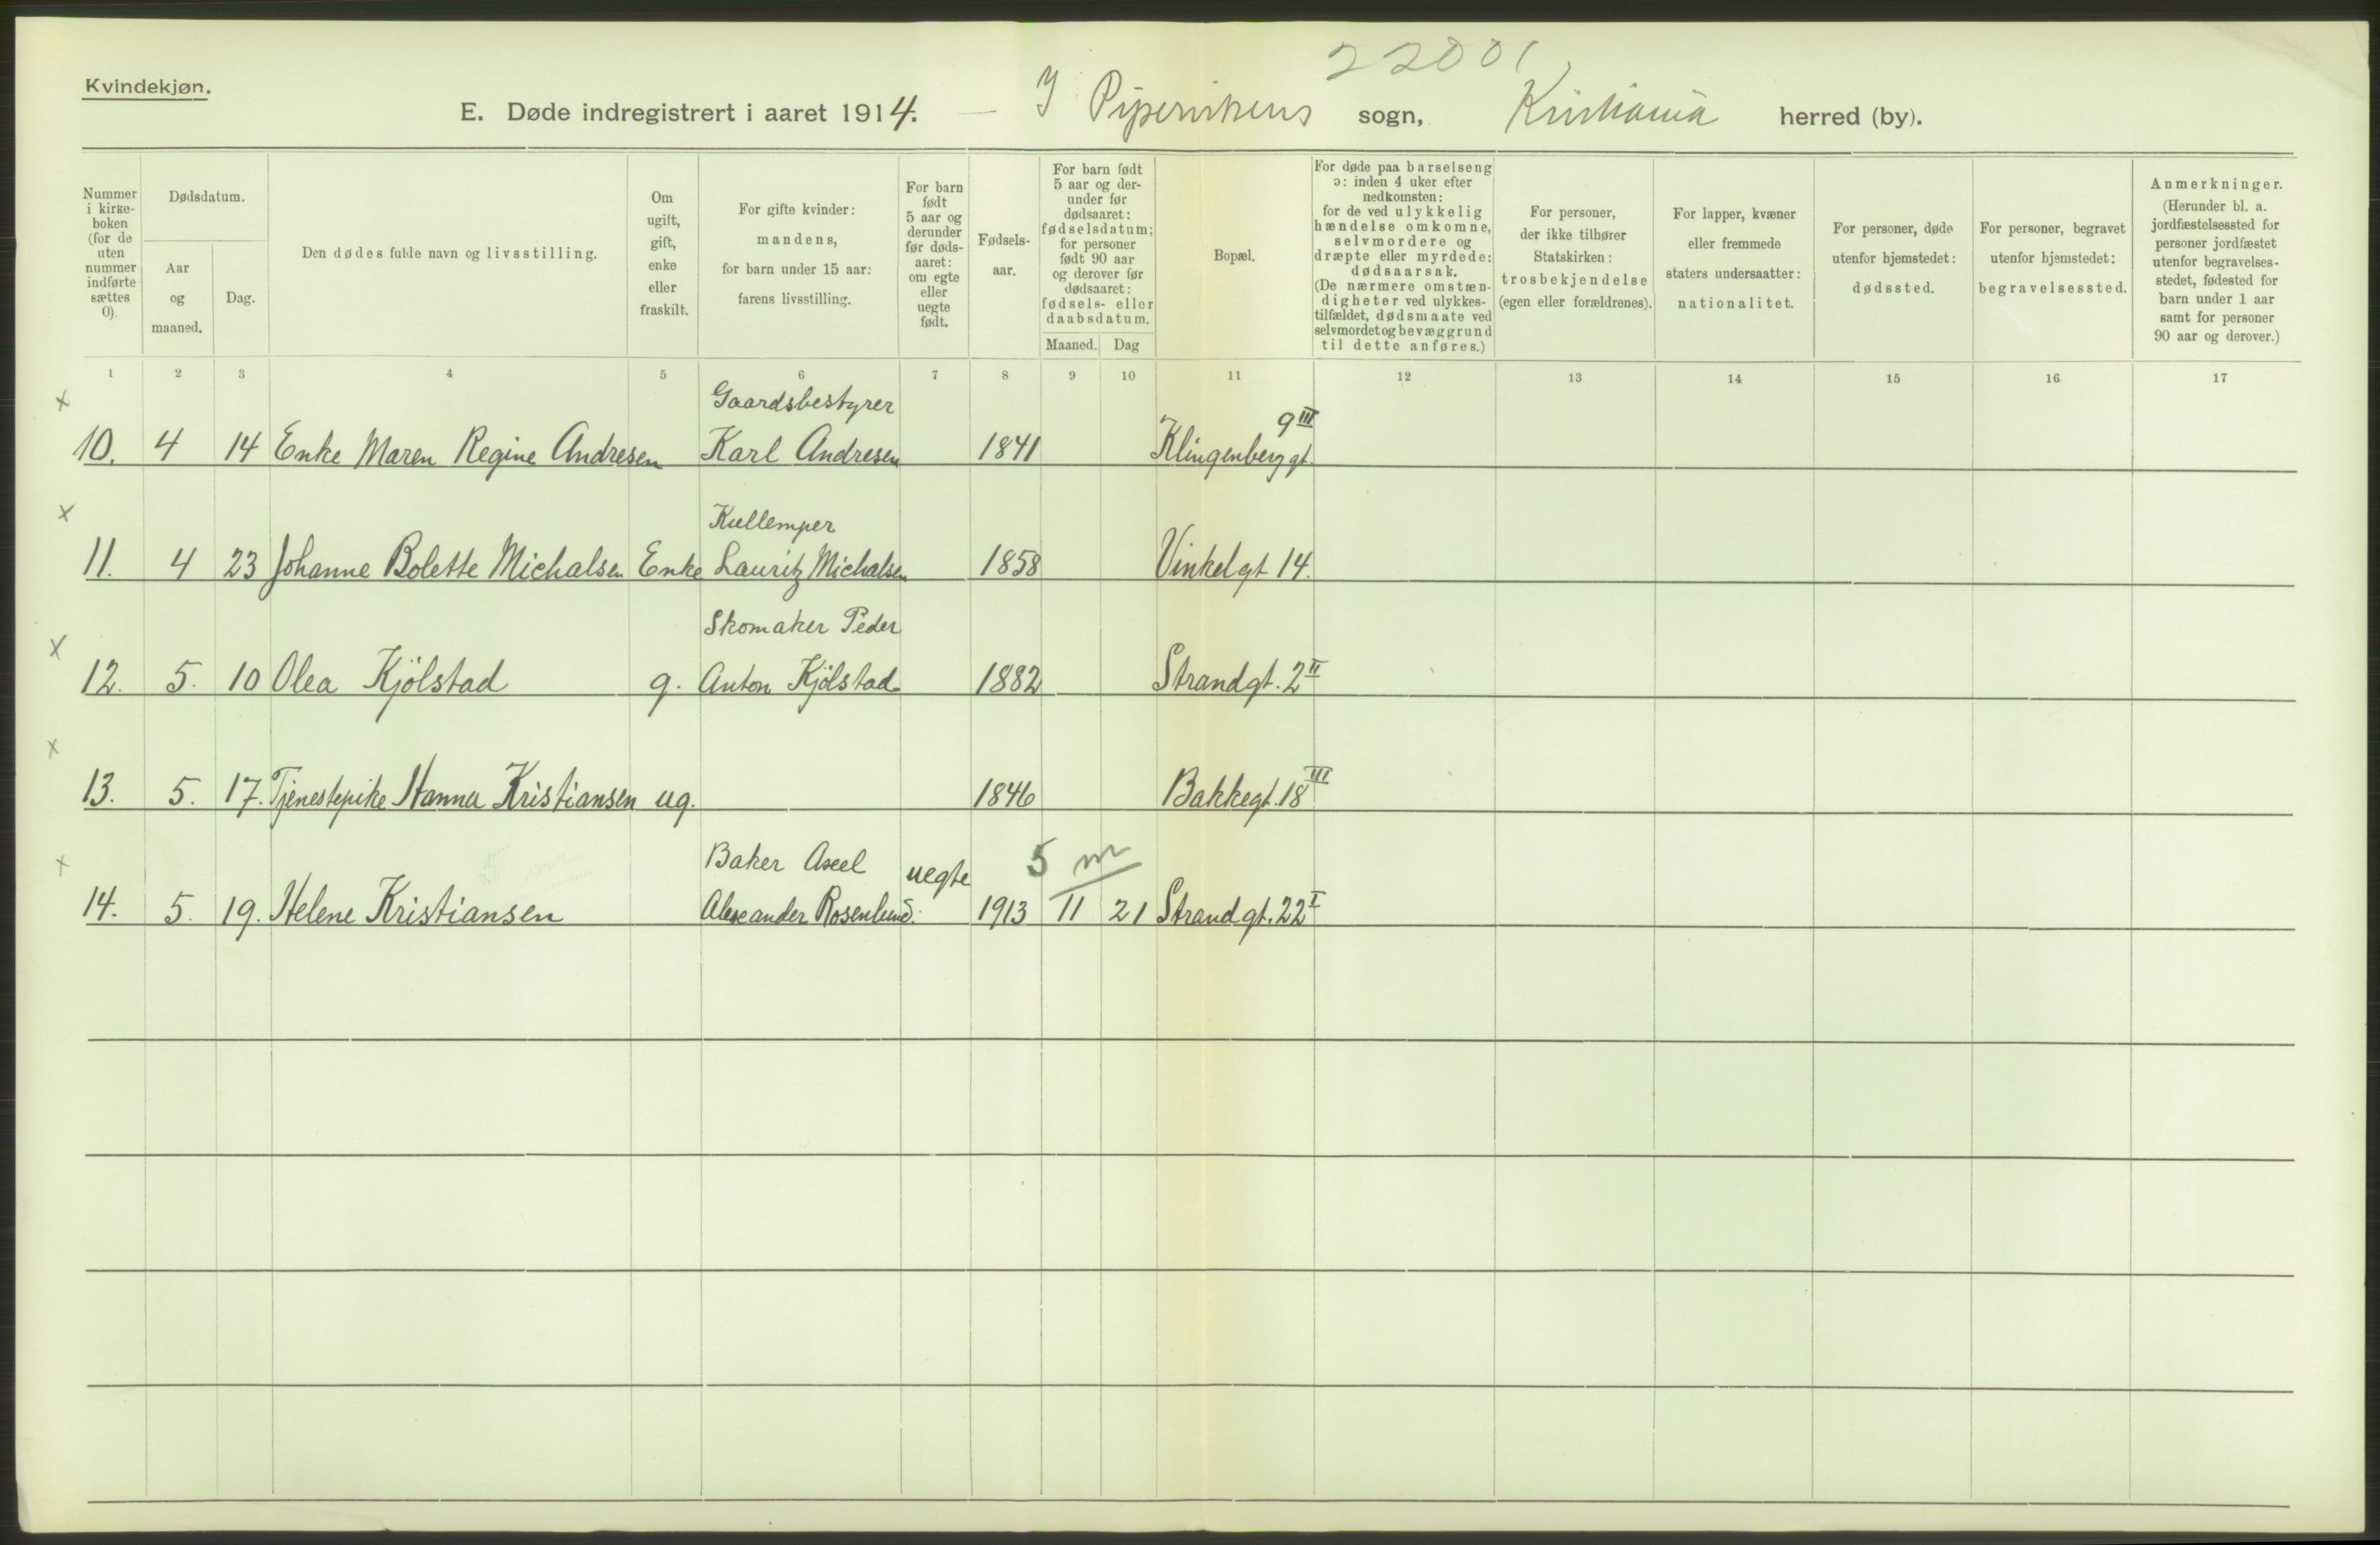 22001
Kvindekjøn.
E. Døde indregistrert i aaret 1914. — I Pipervikens sogn, Kristiania herred (by).
Nummer i kirke-boken (for de uten nummer indførte sættes 0).
Dødsdatum.
Aar og maaned.
Dag.
Den dødes fulde navn og livsstilling.
Om ugift, gift, enke eller fraskilt.
For gifte kvinder: mandens, for barn under 15 aar: farens livsstilling.
For barn født 5 aar og derunder før døds-aaret: om egte eller uegte født.
Fødsels-aar.
For barn født 5 aar og der-under før dødsaaret: fødselsdatum; for personer født 90 aar og derover før dødsaaret: fødsels- eller daabsdatum.
Maaned. Dag
Bopæl.
For døde paa barselseng ɔ: inden 4 uker efter nedkomsten: for de ved ulykkelig hændelse omkomne, selvmordere og dræpte eller myrdede: dødsaarsak. (De nærmere omstæn-digheter ved ulykkes-tilfældet, dødsmaate ved selvmordet og bevæggrund til dette anføres.)
For personer, der ikke tilhører Statskirken: trosbekjendelse (egen eller forældrenes).
For lapper, kvæner eller fremmede staters undersaatter: nationalitet.
For personer, døde utenfor hjemstedet: dødssted.
For personer, begravet utenfor hjemstedet: begravelsessted.
Anmerkninger. (Herunder bl. a. jordfæstelsessted for personer jordfæstet utenfor begravelses-stedet, fødested for barn under 1 aar samt for personer 90 aar og derover.)
1 2 3 4 5 6 7 8 9 10 11 12 13 14 15 16 17
x Gaardsbestyrer 9 III
10. 4 14 Enke Maren Regine Andresen Karl Andresen 1841 Klingenberggt.
x Kullemper
11. 4 23 Johanne Bolette Michalsen Enke Lauritz Michalsen 1858 Vinkelgt 14.
x Skomaker Peder
12. 5. 10 Olea Kjölstad g. Anton Kjölstad 1882 Strandgt. 2 II
x
13. 5. 17. Tjenestepike Hanna Kristiansen ug. 1846 Bakkegt. 18 III
x Baker Axel uegte 5 m
14. 5. 19. Helene Kristiansen Alexander Rosenlund. 1913 11 21 Strandgt. 22 I